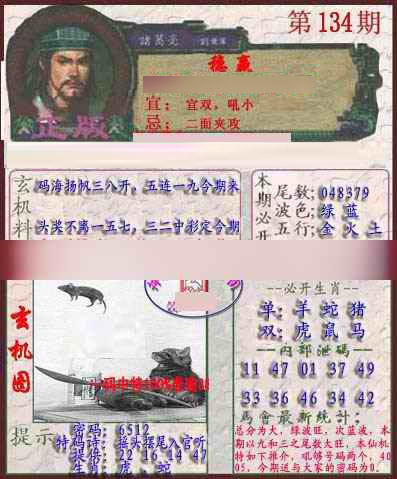 第134期
諸葛亮
稳赢
宜：宜双，吼小
忌：二面夹攻
正版
玄机料
码海扬帆三八开，五连一九今期来
头奖不离一五七，三二寸彩定今期
本期必开
尾数：048379
波色：绿 蓝
五行：金 火 土
玄机图
必开生肖
单：羊 蛇 猪
双：虎 鼠 马
内部泄码
11 47 01 37 49
33 36 46 34 42
馬會最新统计：
总分为大，绿波旺，次蓝波，本
期以九和三之尾数大旺，本仙机
特如下推介，吼够号码两个，40
05，今期送与大家的密码为0。
提示
密码：6512
特码诗：接头摆尾入官听
提供：22 16 14 47
生肖：虎、蛇